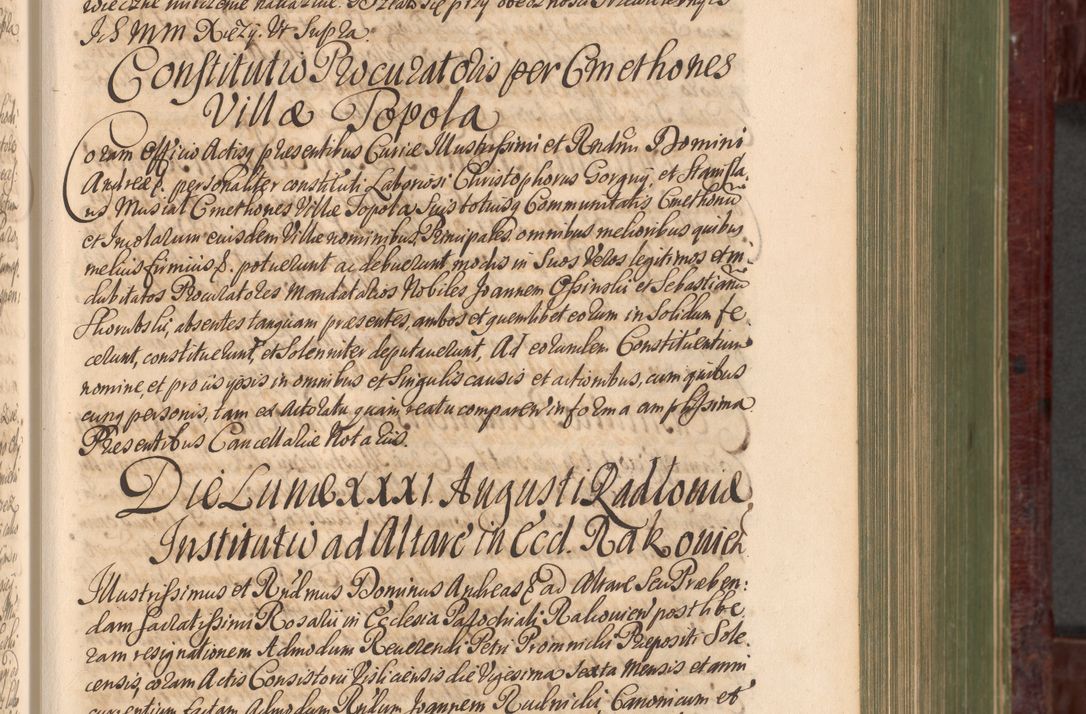 JchMM Xięży. Ut Supra.
Constitutio Procuratoris per Cmethones
Villæ Topola
Coram Officio Actisq præsentibus Curiæ Illustrissimi et Rndmi Domini
Andreæ &. personaliter constituti Laboriosi Christophorus Gorguy, et Stanisla,
us Musiał Cmethones Villæ Topola, Suis totiusq Communitatis Cmethonũ
et Inqlarum eiusdem Villæ nominibus, Principales omnibus melioribus quibus
melius firmius &. potuerunt ac debuerunt, modis in Suos Veros legitimos et in
dubitatos Procuratores Mandatarios Nobiles Joannem Ossinski et Sebastianũ
Chorubski, absentes tanquam præsentes, ambos et quemlibet eorum in Solidum fe
cerunt, constituerunt, et Solenniter deputauerunt, Ad eorundem Constituentium
nomine, et pro iis ipsis in omnibus et Singulis causis et actionibus, cum quibus
cunq personis, tam ex Actoratu quam reatu comparen in forma amplissima.
Præsentibus Cancellariæ Notariis.
Die Lunæ XXXI Augusti Radłoviæ
Institutio ad Altare in Eccl. Rakovien
Illustrissimus et Rndmus Dominus Andreas & ad Altare Seu Præben:
dam Sacratissimi Rosarii in Ecclesia Parochiali Rakovien post libe
ram resignationem Admodum Reuerendi Petri Promnicki Præpositi Sole
censis, coram Actis Consistorii Visliciensis die Vigesima Sexta Mensis et anni
currentium factam Admodum Rndum Joannem Rudnicki Canonicum et